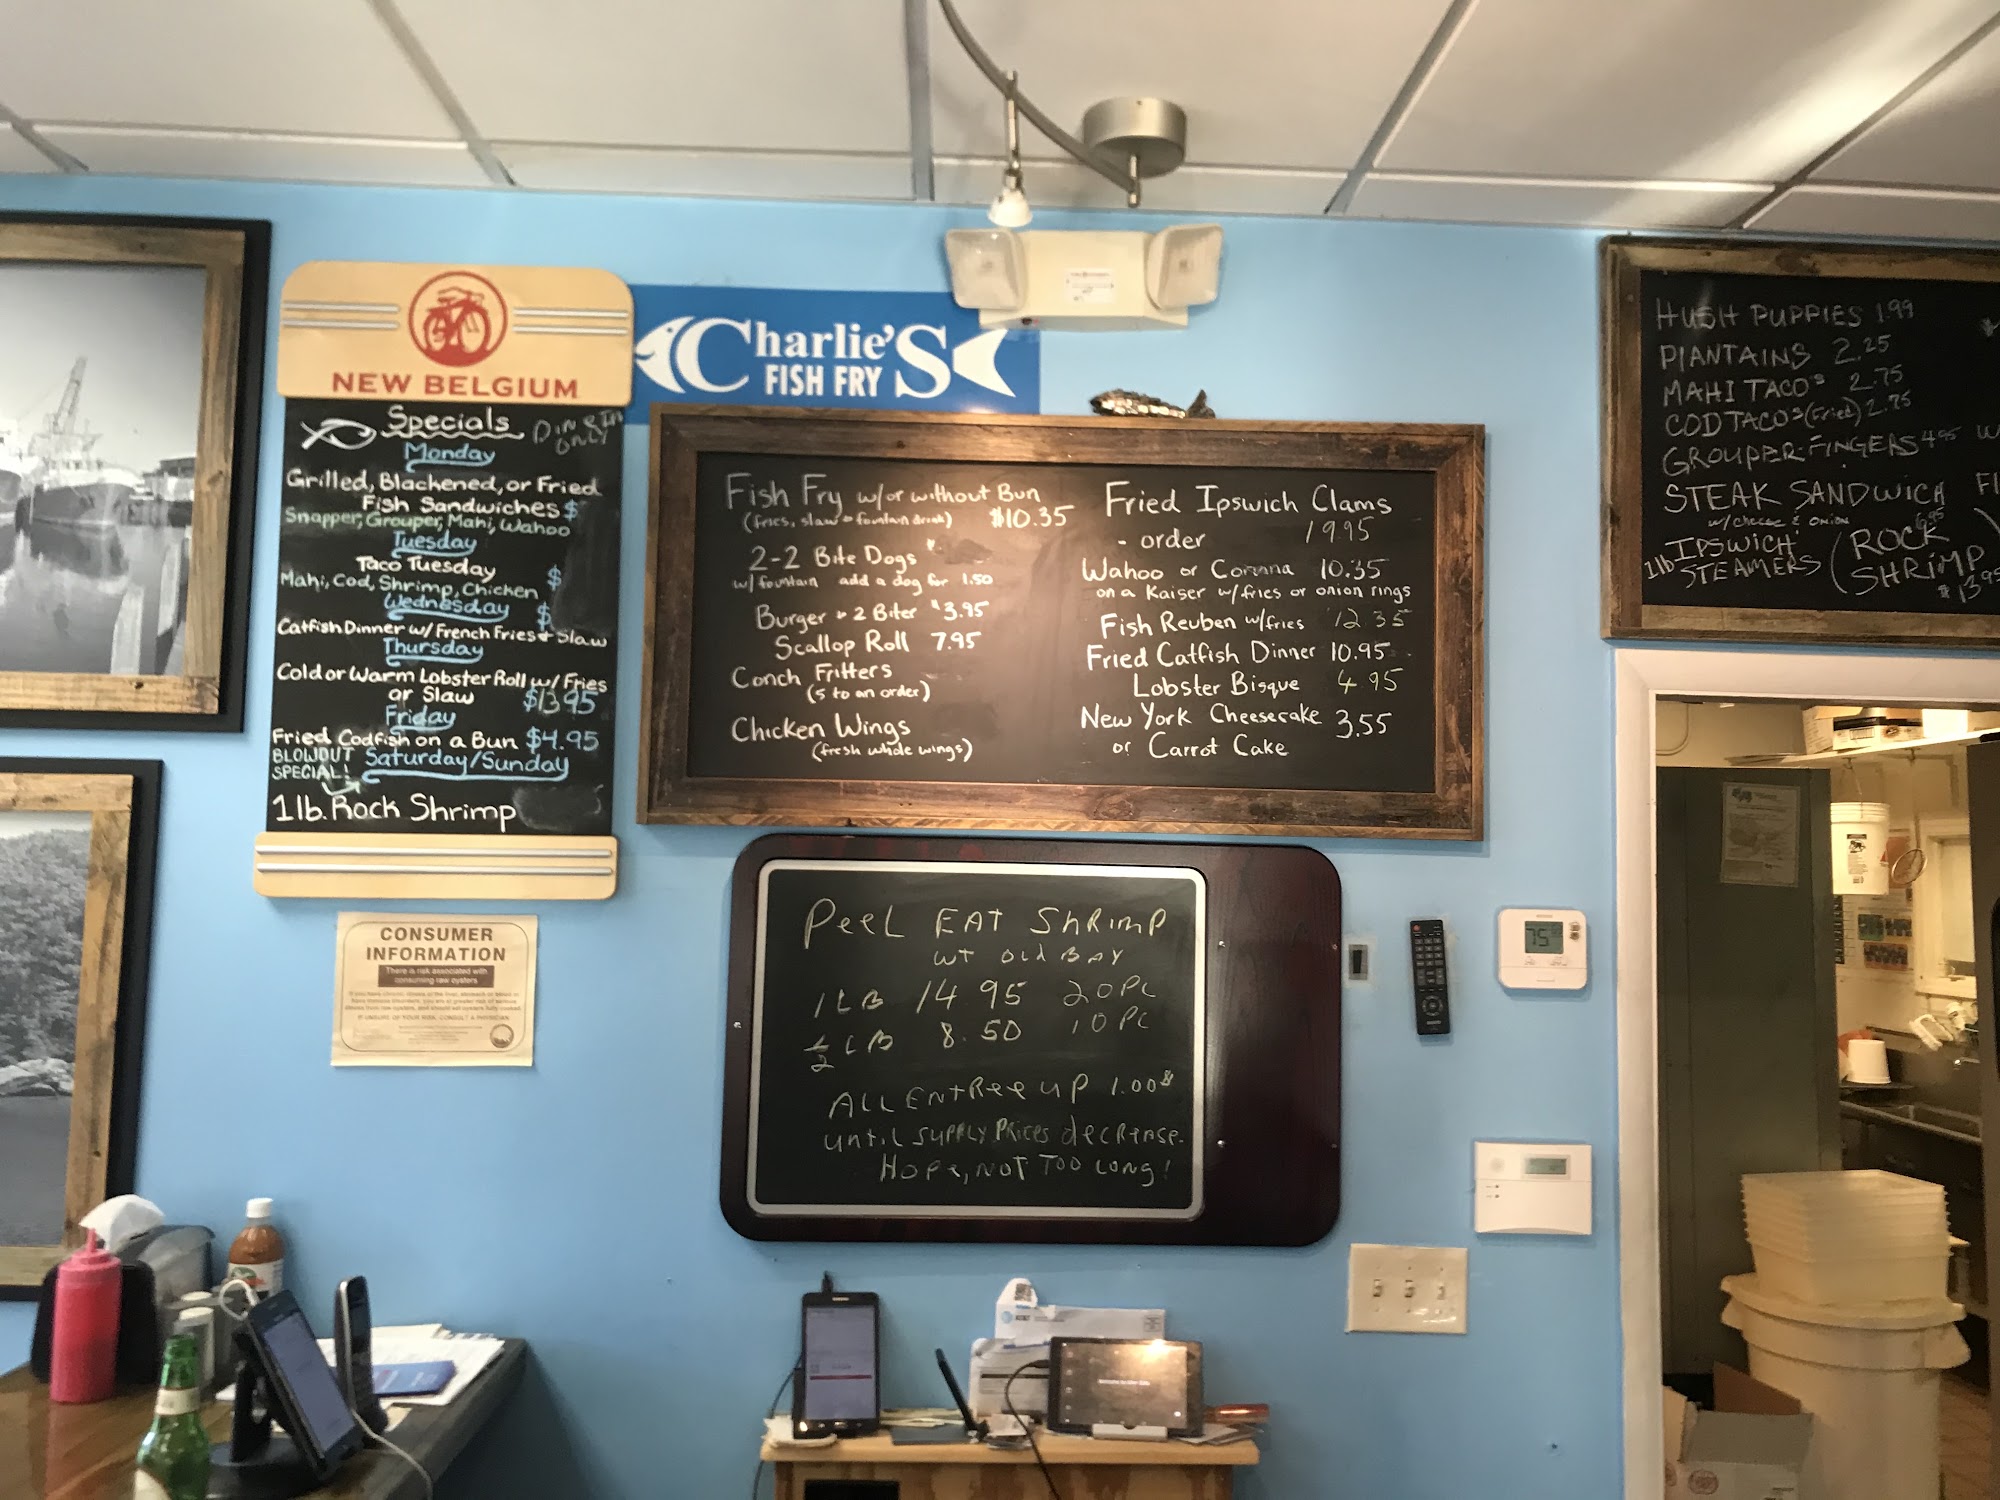 NEW BELGIUM
Specials
DINE IN
ONLY
Monday
Grilled, Blackened, or Fried
Fish Sandwiches $
Snapper, Grouper, Mahi, Wahoo
Tuesday
Taco Tuesday $
Mahi, Cod, Shrimp, Chicken
Wednesday $
Catfish Dinner w/ French Fries + Slaw
Thursday
Cold or Warm Lobster Roll w/ Fries
or Slaw $13.95
Friday
Fried Codfish on a Bun $4.95
BLOWOUT
SPECIAL!
Saturday/Sunday
1 lb. Rock Shrimp
Charlie'S
FISH FRY
Fish Fry w/or without Bun
(fries, slaw + fountain drink) $10.35
2-2 Bite Dogs
w/ fountain add a dog for 1.50
Burger 2 Biter $3.95
Scallop Roll 7.95
Conch Fritters
(5 to an order)
Chicken Wings
(fresh whole wings)
Fried Ipswich Clams
- order 19.95
Wahoo or Corvina 10.35
on a Kaiser w/fries or onion rings
Fish Reuben w/fries 12.35
Fried Catfish Dinner 10.95
Lobster Bisque 4.95
New York Cheesecake 3.55
or Carrot Cake
HUSH PUPPIES 1.99
PlANTAINS 2.25
MAHI TACOS 2.75
COD TACOS (Fried) 2.75
GROUPER-FINGERS 4.95
STEAK SANDWICH
w/ cheese & onion 6.95
1lb IPSWICH
STEAMERS
(ROCK
SHRIMP)
$13.95
CONSUMER
INFORMATION
There is risk associated with
consuming raw oysters
PeeL EAT ShRimP
WT OLD BAY
1 LB 14.95 20 PC
1/2 LB 8.50 10 PC
ALL ENTREE UP 1.00$
until SUPPLY PRICES decrease.
Hope, NOT TOO LONG!
75